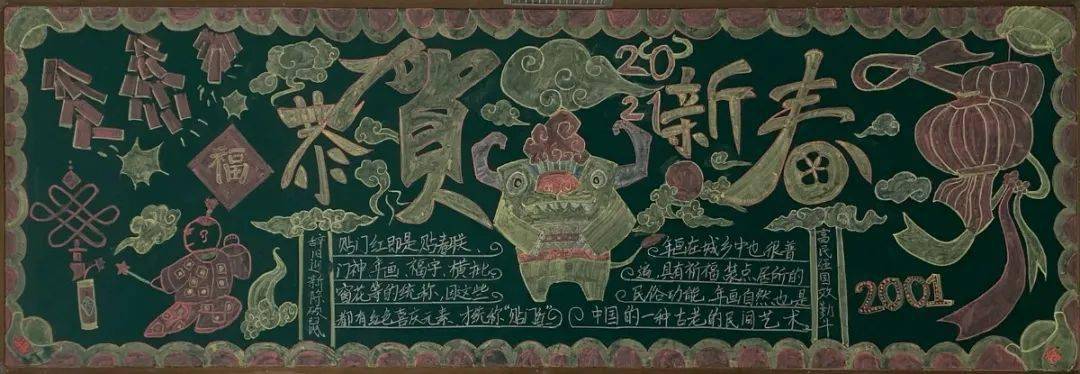 福
恭賀
2021
新春
辞旧迎新除破鼠
贴门红即是贴春联、
门神、年画、福字、横批、
窗花等的统称,因这些
都有红色喜庆元素,才统称“贴
年画在城乡中也很普
遍,具有祈福、装点、居所的
民俗功能,年画自然也是
中国的一种古老的民间艺术
富民经国效新牛
2001